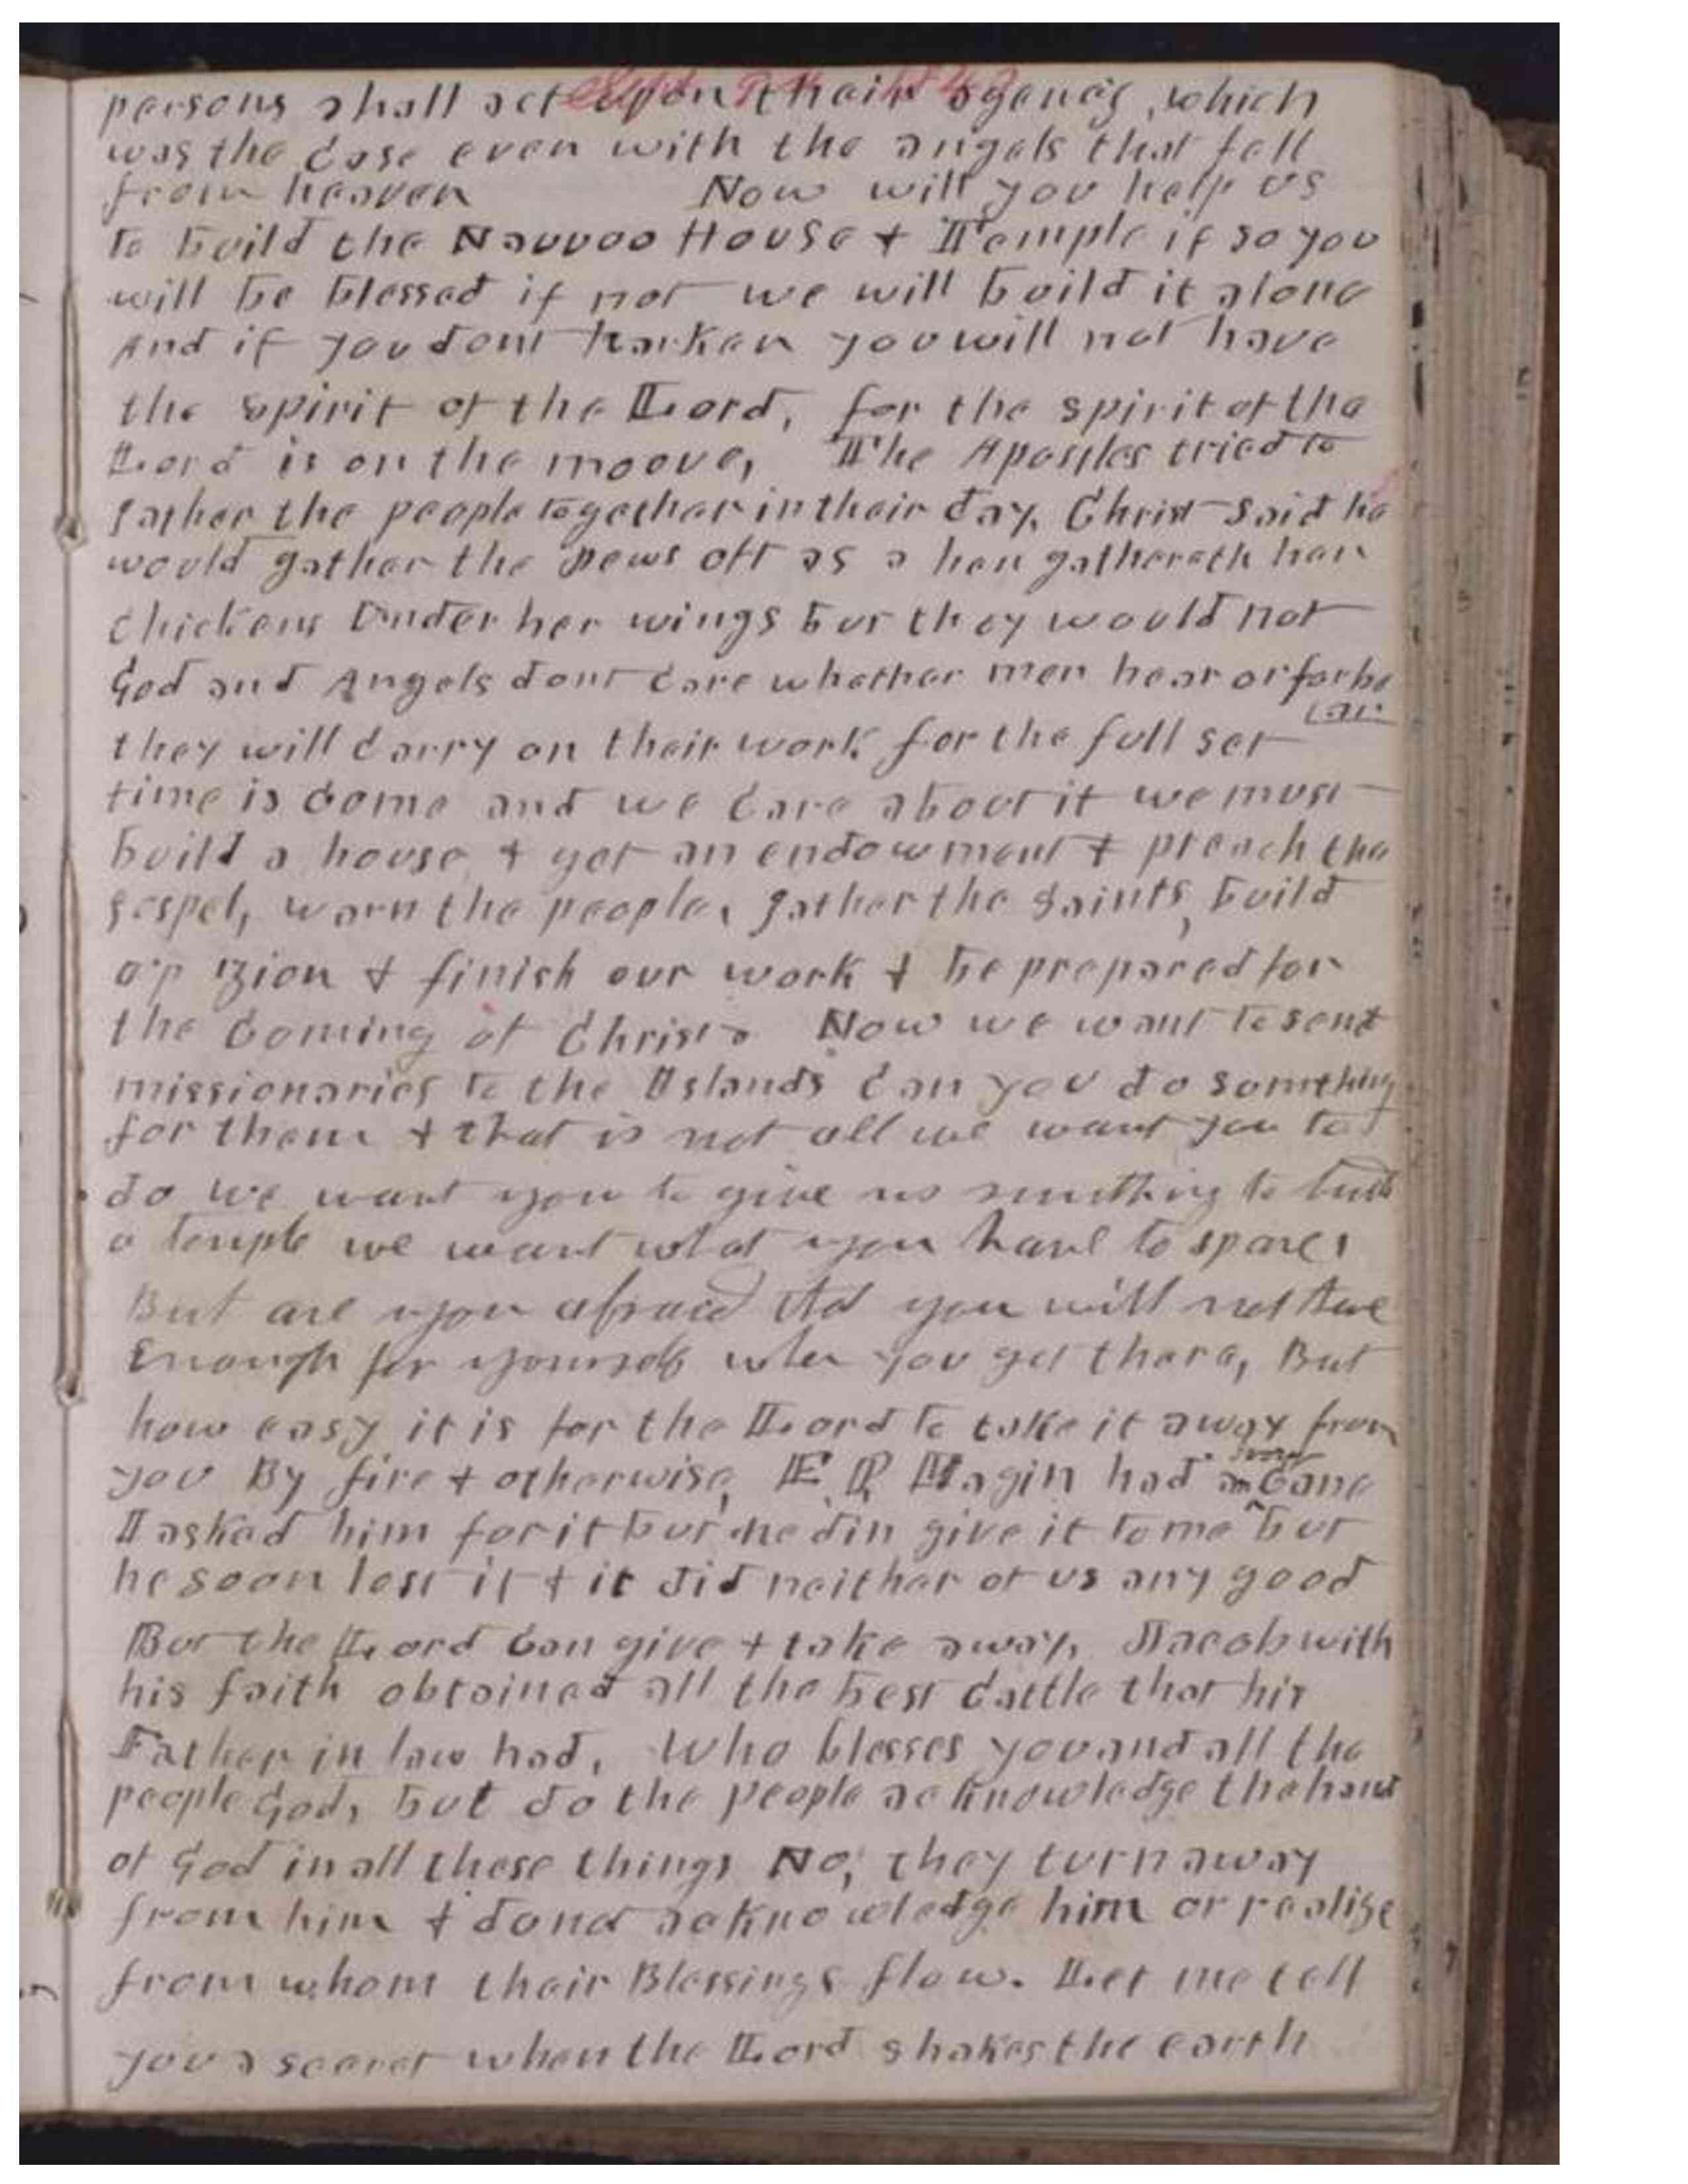 persons shall act upon their agency, which
was the case even with the angels that fell
from heaven Now will you help us
to build the Nauvoo House & Temple if so you
will be blessed if not we will build it alone
And if you dont harken you will not have
the spirit of the Lord, for the spirit of the
Lord is on the moove, The Apostles tried to
gather the people together in their day, Christ said he
would gather the Jews oft as a hen gathereth her
chickens under her wings but they would not
God and Angels dont care whether men hear or forbe
ear
they will carry on their work for the full set
time is come and we care about it we must
build a house, & get an endowment & preach the
gospel, warn the people, gather the Saints, build
up Zion & finish our work & be prepared for
the coming of Christ. Now we want to send
missionaries to the Islands can you do somthing
for them & that is not all we want you to
do we want you to give us somthing to build
a temple we want what you have to spare,
But are you afraid that you will not have
Enough for yourself when you get there, But
how easy it is for the Lord to take it away from
you By fire & otherwise, E. P. Magin had a
Cane
I asked him for it but he din give it to me but
he soon lost it & it did neither of us any good
But the Lord can give & take away, Jacob with
his faith obtained all the best cattle that his
Father in law had, Who blesses you and all the
people God, but do the people acknowledge the hand
of God in all these things No, they turn away
from him & donot acknowledge him or realize
from whom their Blessings flow. Let me tell
you a secret when the Lord shakes the earth